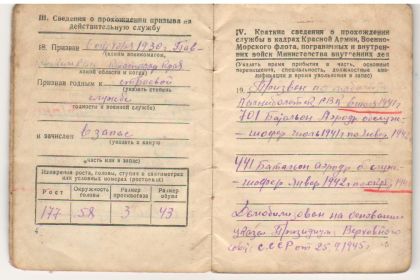 III. Сведения о прохождения призыва на
действительную службу
18. Призван 1930 г.
(каким военкоматом,
края
какой области и когда)
Призван годным к строевой
службе
(годность к военной службе)
и зачислен в запас
(указать в какую
часть или в запас)
Измерения роста, головы, ступни в сантиметрах
или условных номерах (ростовках)
Рост Окружность головы Размер противогаза Размер обуви
177 58 3 43
4
IV. Краткие сведения о прохождении
службы в кадрах Красной Армии, Военно-
Морского флота, пограничных и внутрен-
них войск Министерства внутренних дел
(Указать время прибытия в часть, основные
перемещения, специальность, должностные
и время увольнения в запас)
19. Призван по
РВК 1941 г.
701 Батальон Аэродр обслуж-
– шофер июль 1941 г по январ 1942
441 Баталион аэродр обслуж.
– шофер январ 1942 г по
Демобилизован на основании
указа Президиума Верховного
Сов. СССР от 25.9 1945 г.